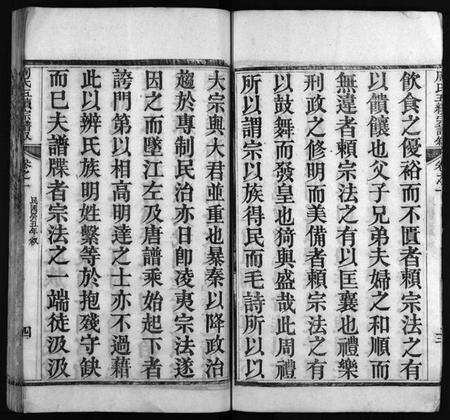 飲食之優裕而不匱者宗法之有
以饋饟也父子兄弟夫婦之和順而
無違者賴宗法之有以匡襄也禮樂
刑政之修明而美備者賴宗法之有
以鼓舞而發皇也猗與盛哉此周禮
所以謂宗以族得民而毛詩所以以
大宗與大君並重也暴秦以降政治
趨於專制民治亦日卽凌夷宗法遂
因之而墜江左及唐譜乘始起下者
誇門第以相高明達之士亦不過藉
此以辨氏族明姓繫等於抱殘守缺
而已夫譜牒者宗法之一端徒汲汲
卷之一
民國癸丑年敘
四